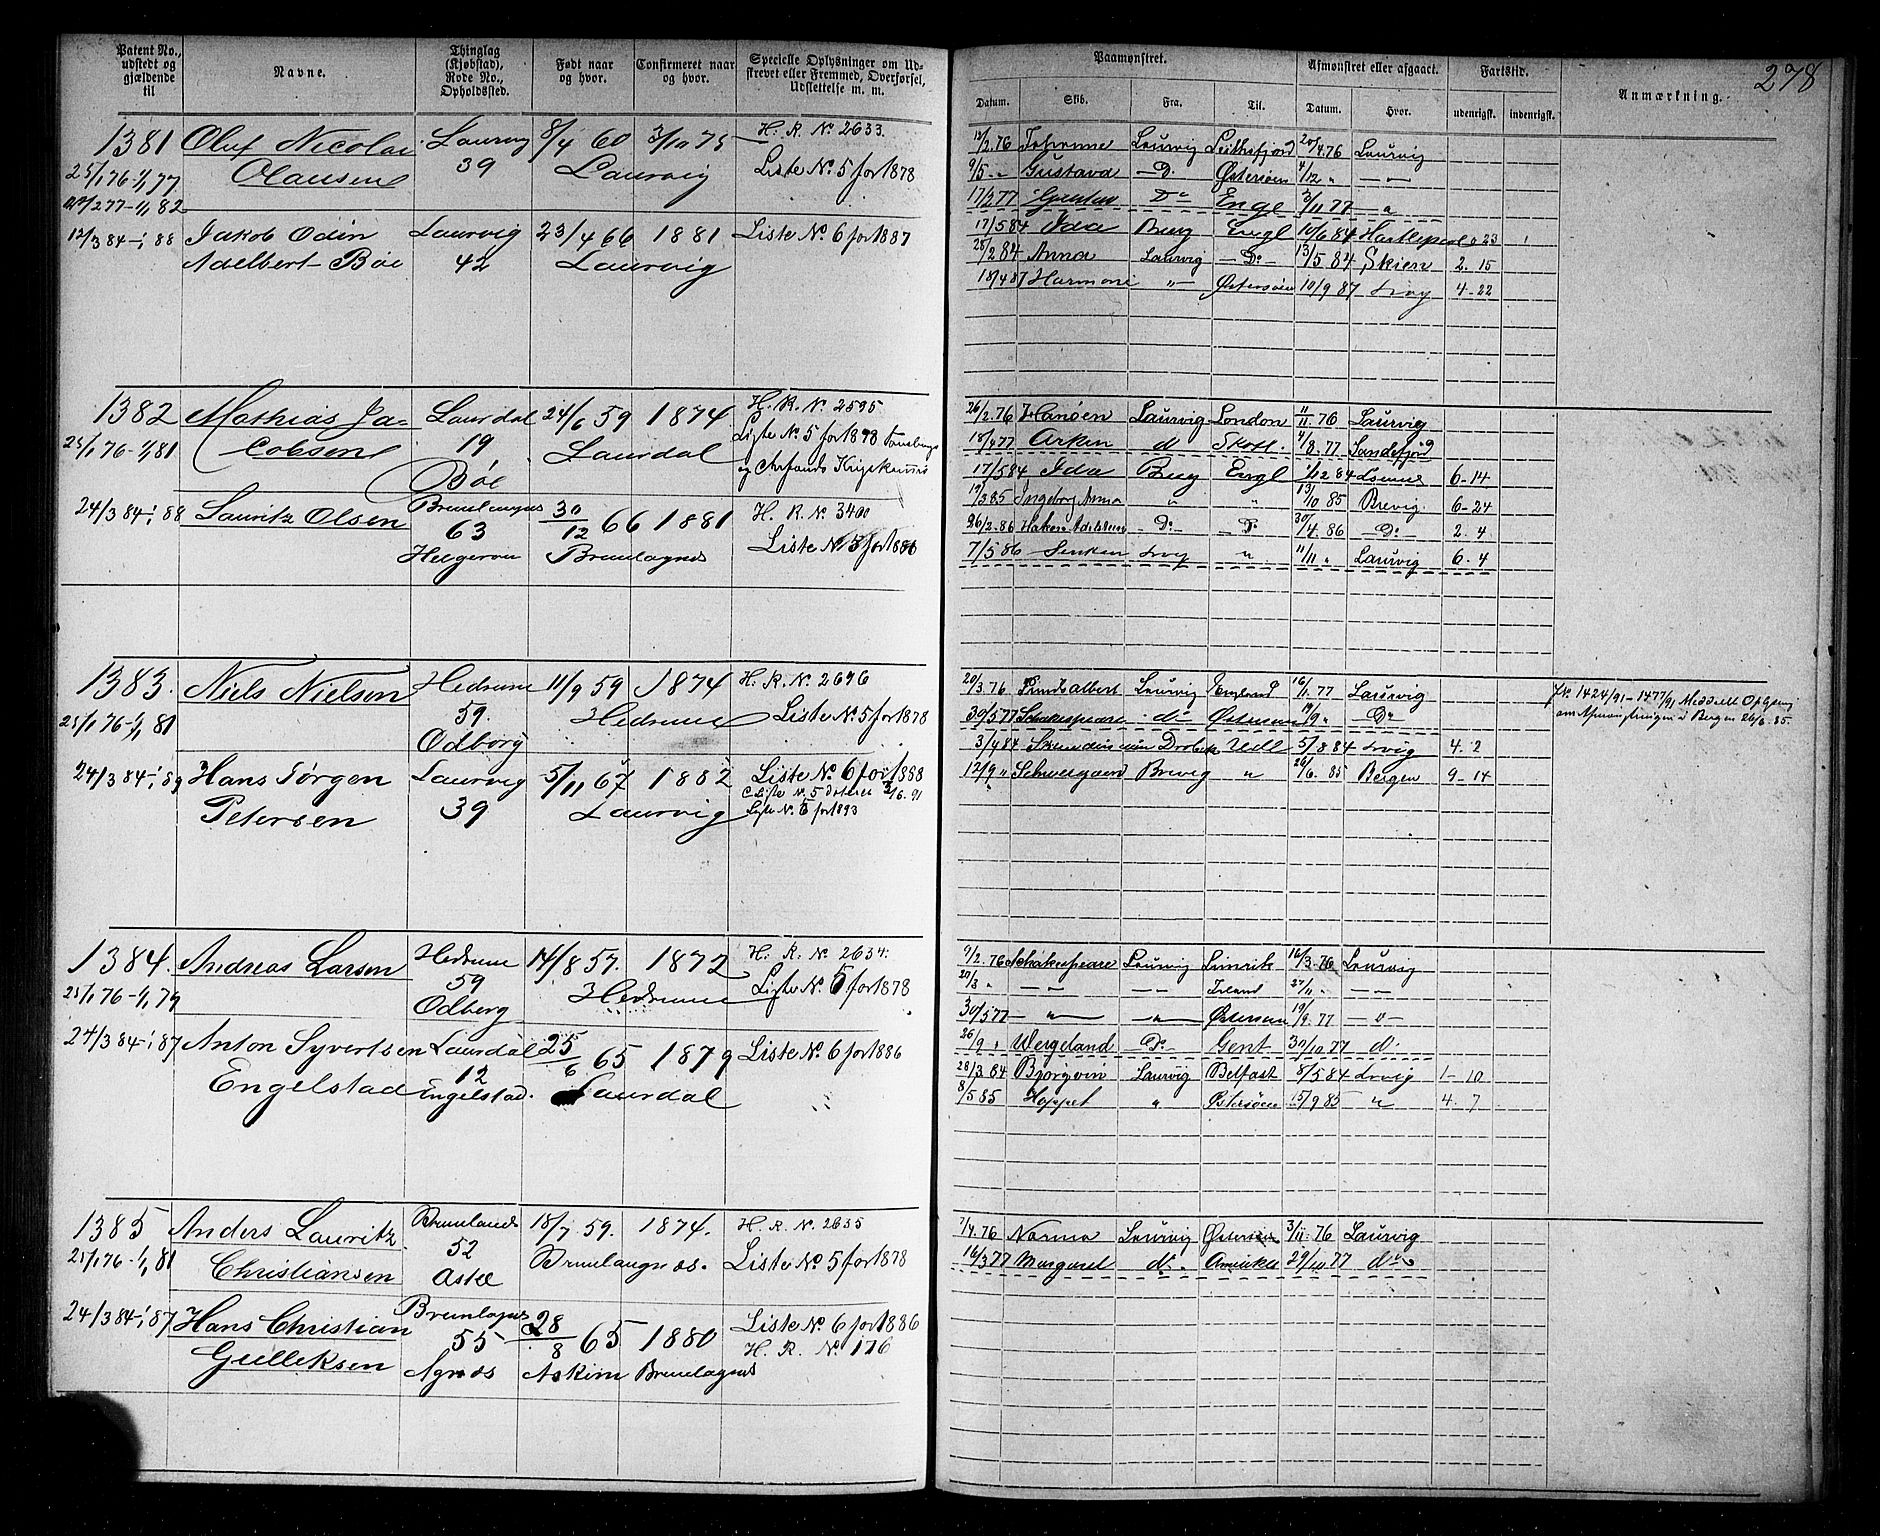 278
Patent No., udstedt og gjældende til | Navne. | Thinglag (Kjøbstad), Rode No., Opholdssted. | Født naar og hvor. | Confirmeret naar og hvor. | Specielle Oplysninger om Udstrevet eller Fremmed, Overførsel, Udslettelse m. m.
1381 Oluf Nicolai Laurvig 8/4 60 3/10 75 H. R. No 2633.
25/1 76-1/1 77 Olausen 39 Laurvig Liste No. 5 for 1878
22/2 77-1/1 82
12/3 84-1/1 88 Jakob Odin Laurvig 23/4 66 1881 Liste No. 6 for 1887
Adelbert Bøe 42 Laurvig
1382 Mathias Ja- Laurdal 24/6 59 1874 H. R. No. 2595
25/1 76-1/1 81 cobsen 19 Laurdal Liste No. 5 for 1878
Bøe
24/3 84-1/1 88 Lauritz Olsen Brunlangnes 30/12 66 1881 H. R. No 3400
63 Brunlagnes Liste No
Helgeroa
1383. Niels Nielsen Hedrum 11/9 59 1874 H. R. No. 2696
25/1 76-1/1 81 59. Hedrum Liste No. 5 for 1878
Odberg
24/3 84-1/1 89 Hans Jørgen Laurvig 5/11 67 1882 Liste No. 6 for 1888
Petersen 39 Laurvig Liste No. 5 for 1893
1384. Andreas Larsen Hedrum 14/8 57. 1872 H. R. No 2634.
25/1 76-1/1 79 59 Hedrum Liste No. 5 for 1878
Odberg
24/3 84-1/1 87 Anton Syvertsen Laurdal 25/6 65 1879 Liste No. 6 for 1886
Engelstad 12 Laurdal
Engelstad.
1385 Anders Lauritz Brunlands 18/7 59. 1874. H. R. No. 2635
25/1 76-1/1 81 Christiansen 52 Brunlaugnæs. Liste No. 5 for 1878
24/3 84-1/1 87 Hans Christian Brunlagnes 28/8 65 1880 Liste No. 6 for 1886
Gulleksen 55 H. R. No. 176
Agnæs Askim Brunlagnes
Paamønstret. | Afmønstret eller afgaaet. | Fartstid. | Anmærkning.
Datum. | Skib. | Fra. | Til. | Datum. | Hvor. | udenrigsk. | indenrigsk.
12/2 76 Johanne Laurvig 20/4 76 Laurvig
9/5 " Gustava Do. Østersøen 4/12 "
17/2 77 Gustav Do Engl 3/11 77 "
17/5 84 Ida Burg Engl 10/6 84 Hartlepool 0 23
28/2 84 Anna Laurvig Do 13/5 84 Skien 2. 15
18/4 87 Harmoni " Østersøen 10/9 87 Lrvg 4-22
26/2 76 Hanøen Laurvig London 11/11 76 Laurvig
18/4 77 Arken d Skotl. 4/8 77 Sandefjord
17/5 84 Ida Burg Engl 1/12 84 6-14
19/3 85 Ingeborg Anna " " 13/10 85 Brevig 6-24
26/2 86 Hakon Adelsteen Do Do 30/4 86 Do 2. 4
7/5 86 Lrvg " 11/11 " Laurvig 6. 4
20/3 76 Laurvig England 16/11 77 Laurvig
30/5 77 Schakespeare do Østersøen 19/9 " Do
3/4 84 Drobak 5/8 84 Lrvig 4. 2
12/9 " Schweigaard Brevig " 26/6. 85 Bergen 9-14
JNo 1424/91-1477/91 Meddelt Oplysning
om Afmønstringen i Bergen 26/6. 85.
9/2. 76 Schakespeare Laurvig Limrik 16/3. 76 Laurvig
20/3 " Irland 27/11 "
30/5 77 " " Østersøen 19/9. 77 "
26/9 " Wergeland Do Gent 30/10 77 d.
28/3 84 Bjørgvin Laurvig Belfast 8/5 84 Lrvig 1-10
8/5 85 Haabet " Østersøen 15/9 85 " 4. 7
7/4. 76 Norma Laurvig Østersøen 3/11. 76 Laurvig
16/3 77 Margaret do. Amerika 29/10 77 do